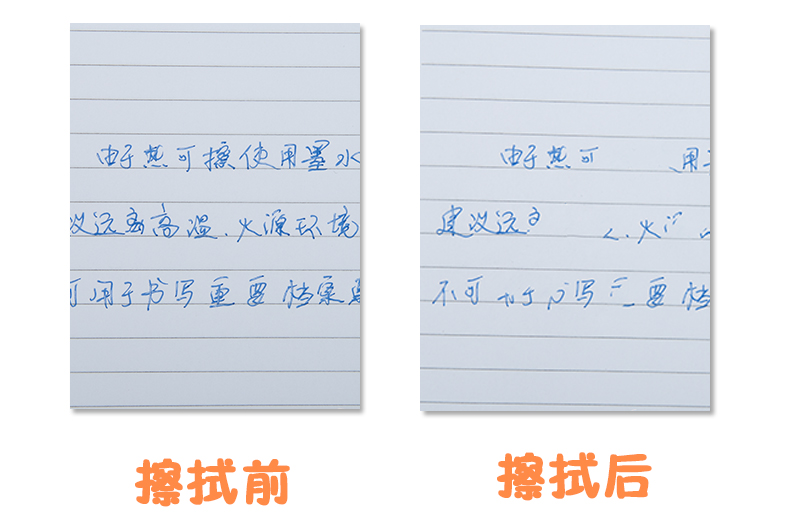 由于热可擦使用墨水
议远离高温.火源环境
可用于书写重要档案
擦拭前
由于热可 用
建议远 火
不可 写 要档
擦拭后